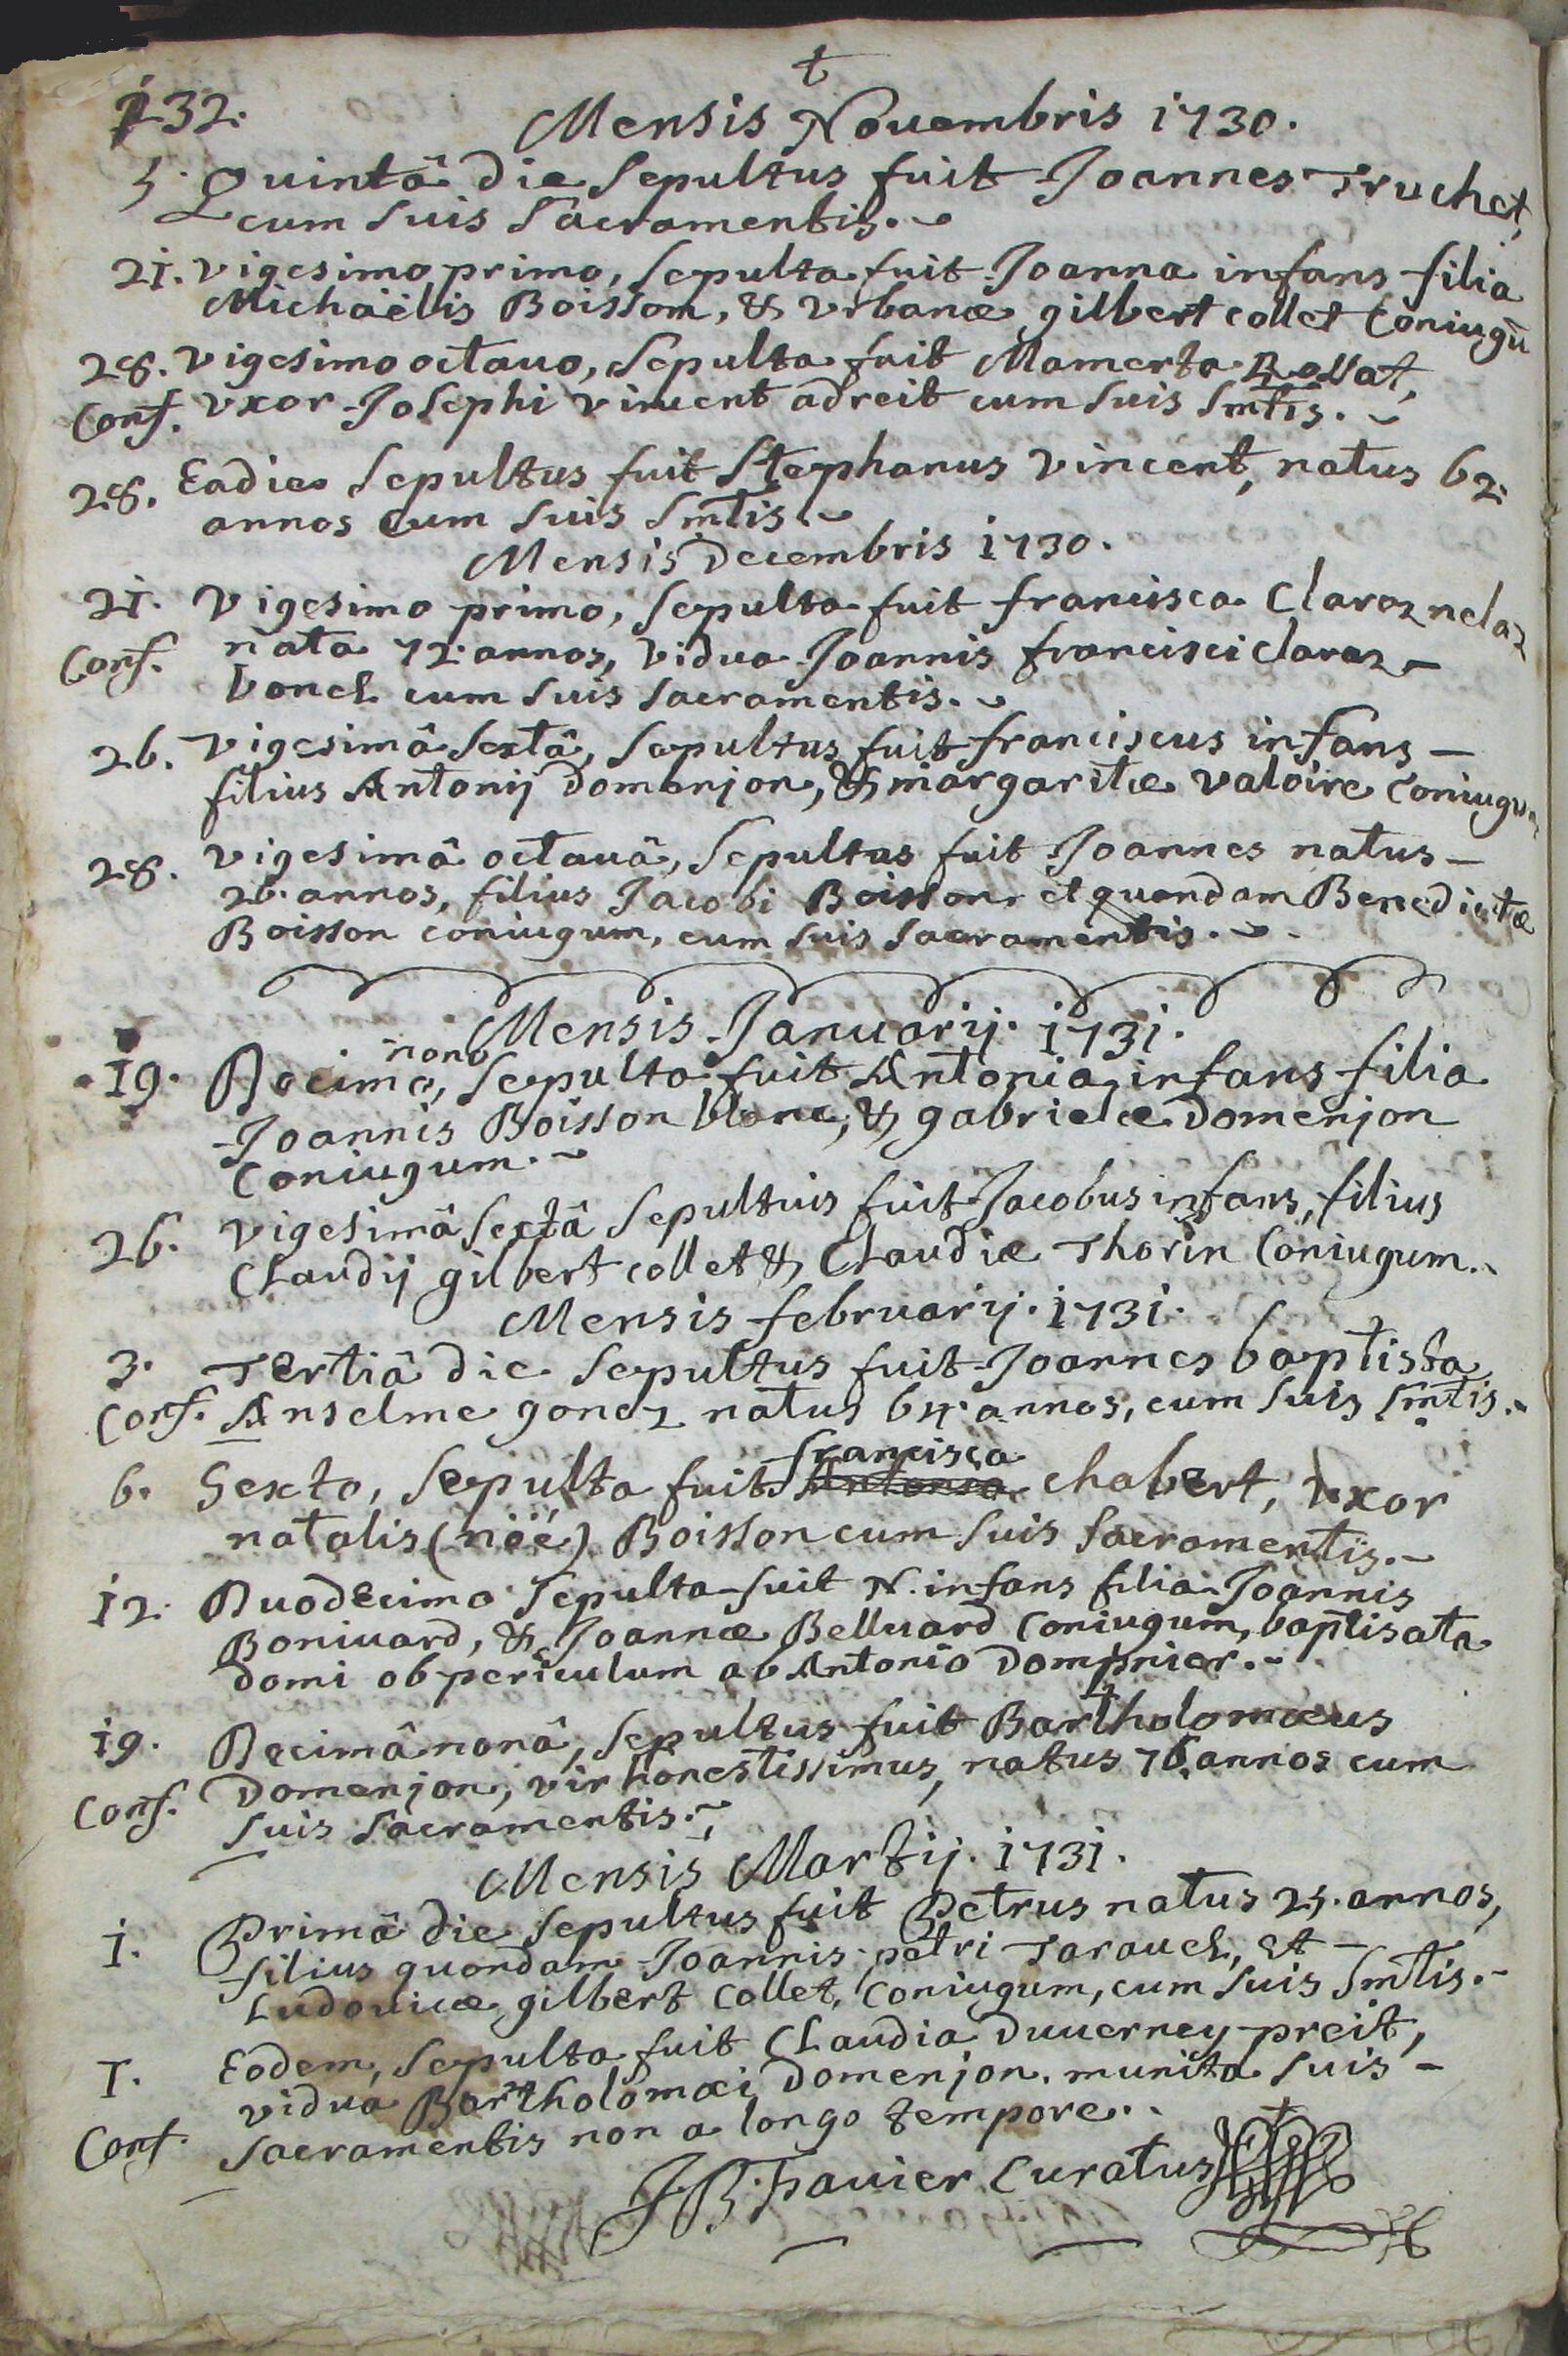 †
132.
Mensis Nouembris 1730.
5. Quintâ die Sepultus fuit Joannes Truchet,
cum suis Sacramentis.
21. vigesimo primo, sepulta fuit Joanna infans filia
Michaëlis Boisson, & vrbanæ gilbert collet Coniugū
28. vigesimo octauo, Sepulta fuit Mamerta Rollat,
Conf. vxor Josephi vincent adreit cum suis Smtis.
28. Eadie Sepultus fuit Stephanus vincent, natus 62.
annos cum suis Smtis
Mensis Decembris 1730.
21. Vigesimo primo, sepulta fuit francisca Claraz nelaz
Conf. nata 72. annos, vidua Joannis francisci claraz
bonel cum suis sacramentis.
26. vigesimâ sextâ, sepultus fuit franciscus infans
filius Antonij Domenjon, & margaritæ valoire Coniugum
28. vigesimâ octauâ, Sepultus fuit Joannes natus
26. annos, filius Jacobi Boisson et quondam Benedictæ
Boisson coniugum, cum suis Sacramentis.
Mensis Januarij. 1731.
19. Decimo nono, Sepulta fuit Antonia infans filia
Joannis Boisson blanc, & gabrielæ Domenjon
Coniugum.
26. vigesimâ sextâ Sepultus fuit Jacobus infans, filius
Claudij gilbert collet & Claudiæ Thorin Coniugum.
Mensis februarij. 1731.
3. Tertiâ die Sepultus fuit Joannes baptista
Conf. Anselme gonez natus 64. annos, cum suis Smtis.
6. Sexto, Sepulta fuit Antonia francisca chabert, vxor
natalis (nöé) Boisson cum suis sacramentis.
12. Duodecimo Sepulta fuit N. infans filia Joannis
Boniuard, & Joannæ Belluard Coniugum, baptisata
domi ob periculum ab Antonio Dompnier.
19. Decimâ nonâ, Sepultus fuit Bartholomæus
Conf. Domenjon, vir honestissimus, natus 76 annos cum
suis sacramentis.
Mensis Martij. 1731.
1. Primâ die Sepultus fuit Petrus natus 25. annos,
filius quondam Joannis petri Tarauel, et
Ludouicæ gilbert collet, Coniugum, cum suis Smtis.
1. Eodem, Sepulta fuit Claudia Duuerney preit,
vidua Bartholomæi Domenjon. munita suis
Conf. Sacramentis non a longo tempore.
JB. Fauier Curatus